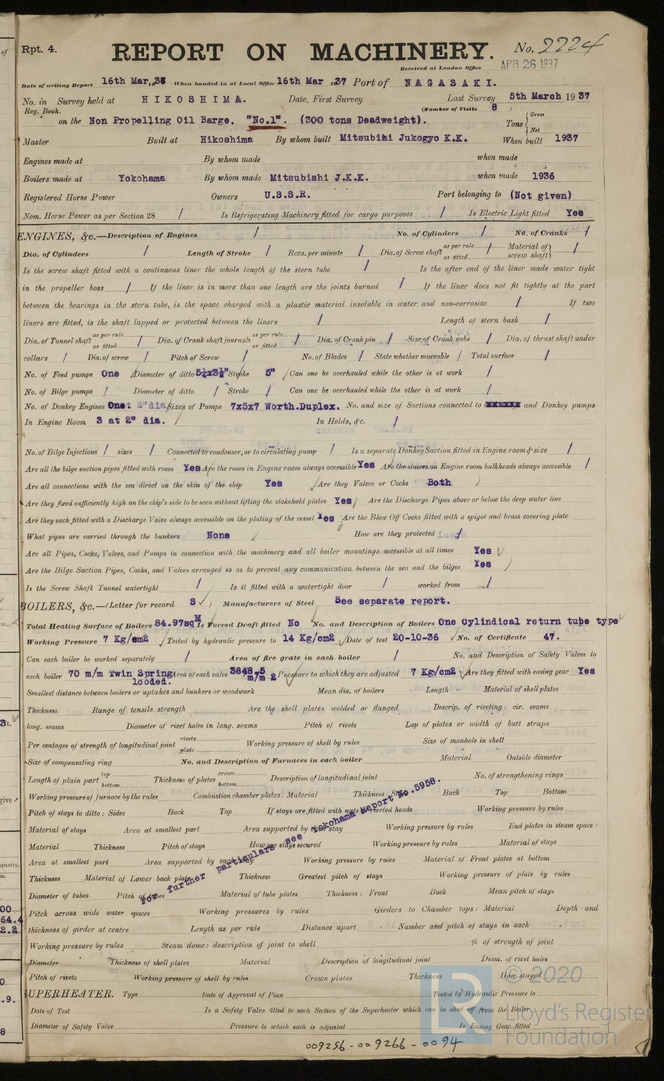 Rpt. 4.
REPORT ON MACHINERY. No. 2224
Received at London Office
APR 26 1937
Date of writing Report 16th Mar, 36 When handed in at Local Office 16th Mar 37 Port of NAGASAKI.
No. in Survey held at HIKOSHIMA. Date, First Survey Last Survey 5th March 1937
Reg. Book. (Number of Visits 8
on the Non Propelling Oil Barge, "No.1". (300 tons Deadweight). Tons Gross Net
Master Built at Hikoshima By whom built Mitsubishi Jukogyo K.K. When built 1937
Engines made at By whom made when made
Boilers made at Yokohama By whom made Mitsubishi J.K.K. when made 1936
Registered Horse Power Owners U.S.S.R. Port belonging to (Not given)
Nom. Horse Power as per Section 28 / Is Refrigerating Machinery fitted for cargo purposes / Is Electric Light fitted Yes
ENGINES, &c.—Description of Engines / No. of Cylinders / No. of Cranks /
Dia. of Cylinders / Length of Stroke / Revs. per minute / Dia. of Screw shaft as per rule as fitted / Material of screw shaft /
Is the screw shaft fitted with a continuous liner the whole length of the stern tube / Is the after end of the liner made water tight
in the propeller boss / If the liner is in more than one length are the joints burned / If the liner does not fit tightly at the part
between the bearings in the stern tube, is the space charged with a plastic material insoluble in water and non-corrosive / If two
liners are fitted, is the shaft lapped or protected between the liners / Length of stern bush /
Dia. of Tunnel shaft as per rule as fitted / Dia. of Crank shaft journals as per rule as fitted / Dia. of Crank pin / Size of Crank webs / Dia. of thrust shaft under
collars / Dia. of screw / Pitch of Screw / No. of Blades / State whether moveable / Total surface /
No. of Feed pumps One Diameter of ditto 5½x3½" Stroke 5" Can one be overhauled while the other is at work /
No. of Bilge pumps / Diameter of ditto / Stroke / Can one be overhauled while the other is at work /
No. of Donkey Engines One: 2"dia, Sizes of Pumps 7x5x7 Worth.Duplex. No. and size of Suctions connected to and Donkey pumps
In Engine Room 3 at 2" dia. In Holds, &c. /
No. of Bilge Injections / sizes / Connected to condenser, or to circulating pump / Is a separate Donkey Suction fitted in Engine room & size /
Are all the bilge suction pipes fitted with roses Yes Are the roses in Engine room always accessible Yes Are the sluices on Engine room bulkheads always accessible /
Are all connections with the sea direct on the skin of the ship Yes Are they Valves or Cocks Both
Are they fixed sufficiently high on the ship's side to be seen without lifting the stokehold plates Yes Are the Discharge Pipes above or below the deep water line
Are they each fitted with a Discharge Valve always accessible on the plating of the vessel Yes Are the Blow Off Cocks fitted with a spigot and brass covering plate
What pipes are carried through the bunkers None How are they protected /
Are all Pipes, Cocks, Valves, and Pumps in connection with the machinery and all boiler mountings accessible at all times Yes
Are the Bilge Suction Pipes, Cocks, and Valves arranged so as to prevent any communication between the sea and the bilges Yes
Is the Screw Shaft Tunnel watertight / Is it fitted with a watertight door / worked from /
BOILERS, &c.—(Letter for record S) Manufacturers of Steel See separate report.
Total Heating Surface of Boilers 84.97sqM Is Forced Draft fitted No No. and Description of Boilers One Cylindical return tube type
Working Pressure 7 Kg/cm2 Tested by hydraulic pressure to 14 Kg/cm2 Date of test 20-10-36 No. of Certificate 47.
Can each boiler be worked separately / Area of fire grate in each boiler / No. and Description of Safety Valves to
each boiler 70 m/m Twin Spring loaded. Area of each valve 3848.5 m/m 2 Pressure to which they are adjusted 7 Kg/cm2 Are they fitted with easing gear Yes
Smallest distance between boilers or uptakes and bunkers or woodwork Mean dia. of boilers Length Material of shell plates
Thickness Range of tensile strength Are the shell plates welded or flanged Descrip. of riveting: cir. seams
long. seams Diameter of rivet holes in long. seams Pitch of rivets Lap of plates or width of butt straps
Per centages of strength of longitudinal joint rivets plate Working pressure of shell by rules Size of manhole in shell
Size of compensating ring No. and Description of Furnaces in each boiler Material Outside diameter
Length of plain part top bottom Thickness of plates crown bottom Description of longitudinal joint No. of strengthening rings
Working pressure of furnace by the rules Combustion chamber plates: Material Thickness: Sides Back Top Bottom
Pitch of stays to ditto: Sides Back Top If stays are fitted with nuts or riveted heads Working pressure by rules
Material of stays Area at smallest part Area supported by each stay Working pressure by rules End plates in steam space:
Material Thickness Pitch of stays How are stays secured Working pressure by rules Material of stays
Area at smallest part Area supported by each stay Working pressure by rules Material of Front plates at bottom
For further particulars see Yokohama Report No.5958.
Thickness Material of Lower back plate Thickness Greatest pitch of stays Working pressure of plate by rules
Diameter of tubes Pitch of tubes Material of tube plates Thickness: Front Back Mean pitch of stays
Pitch across wide water spaces Working pressures by rules Girders to Chamber tops: Material Depth and
thickness of girder at centre Length as per rule Distance apart Number and pitch of stays in each
Working pressure by rules Steam dome: description of joint to shell % of strength of joint
Diameter Thickness of shell plates Material Description of longitudinal joint Diam. of rivet holes
Pitch of rivets Working pressure of shell by rules Crown plates Thickness How stayed
SUPERHEATER. Type Date of Approval of Plan Tested by Hydraulic Pressure to
Date of Test Is a Safety Valve fitted to each Section of the Superheater which can be shut off from the Boiler
Diameter of Safety Valve Pressure to which each is adjusted Is Easing Gear fitted
© 2020
Lloyd's Register
Foundation
009256-009266-0094